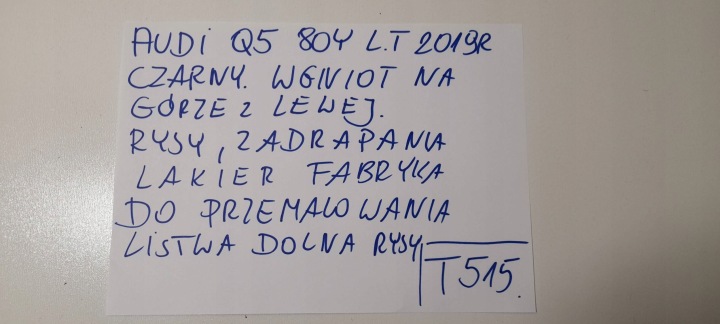 AUDI Q5 80Y L.T 2019R
CZARNY. WGNIOT NA
GÓRZE Z LEWEJ.
RYSY, ZADRAPANIA
LAKIER FABRYKA
DO PRZEMALOWANIA
LISTWA DOLNA RYSY
T515.